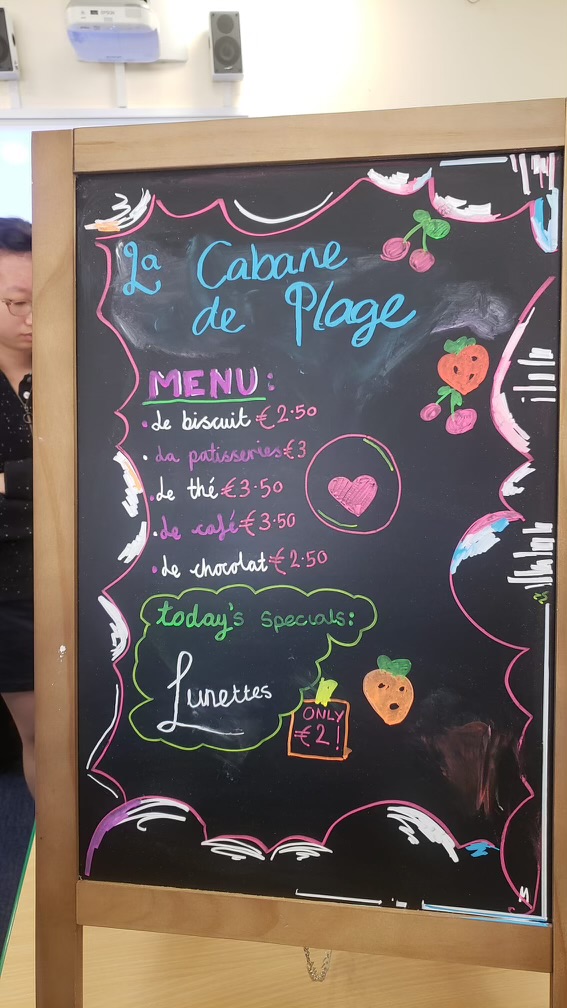 La Cabane
de Plage
MENU:
• Le biscuit €2.50
• La patisseries €3
• Le thé €3.50
• Le café €3.50
• Le chocolat €2.50
today's specials:
Lunettes
ONLY
€2!